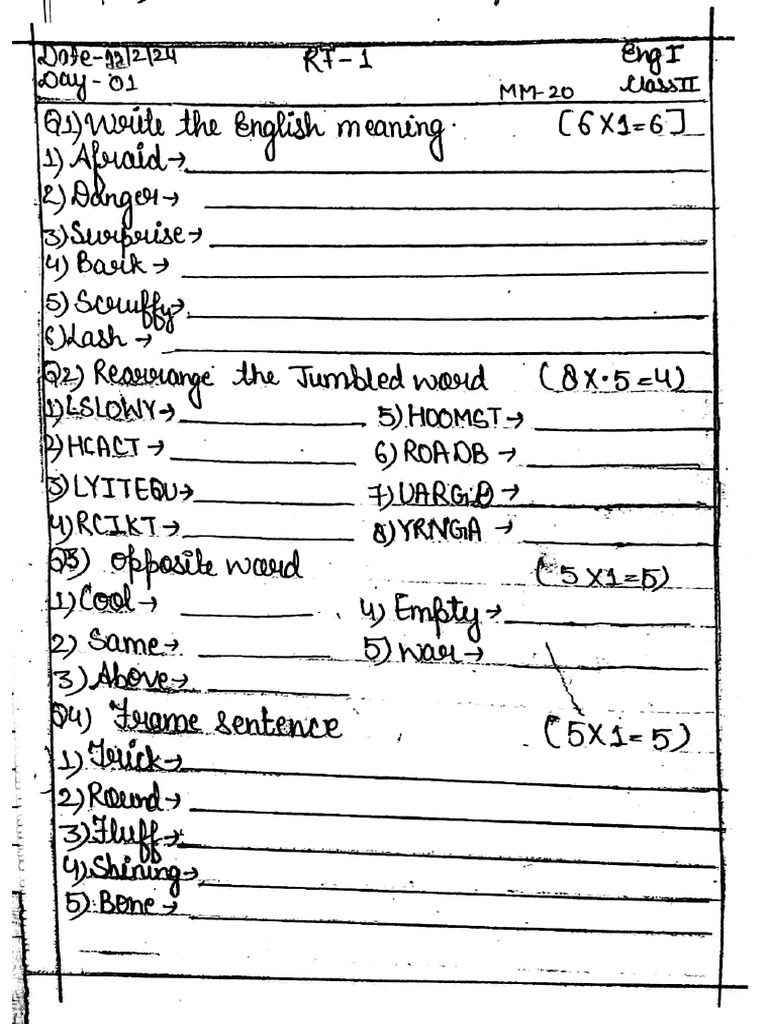 Date-12/2/24 RT-1 Eng I
Day-01 MM-20 Class II
Q1) Write the English meaning. [6X1=6]
1) Afraid→
2) Danger→
3) Surprise→
4) Bark→
5) Scruffy→
6) Lash→
Q2) Rearrange the Jumbled word (8X.5=4)
1) LSLOWY→ 5) HOOMST→
2) HCACT→ 6) ROADB→
3) LYITEQU→ 7) UARGiD→
4) RCIKT→ 8) YRNGA→
Q3) Opposite word (5X1=5)
1) Cool→ 4) Empty→
2) Same→ 5) War→
3) Above→
Q4) Frame sentence (5X1=5)
1) Trick→
2) Round→
3) Fluff→
4) Shining→
5) Bone→